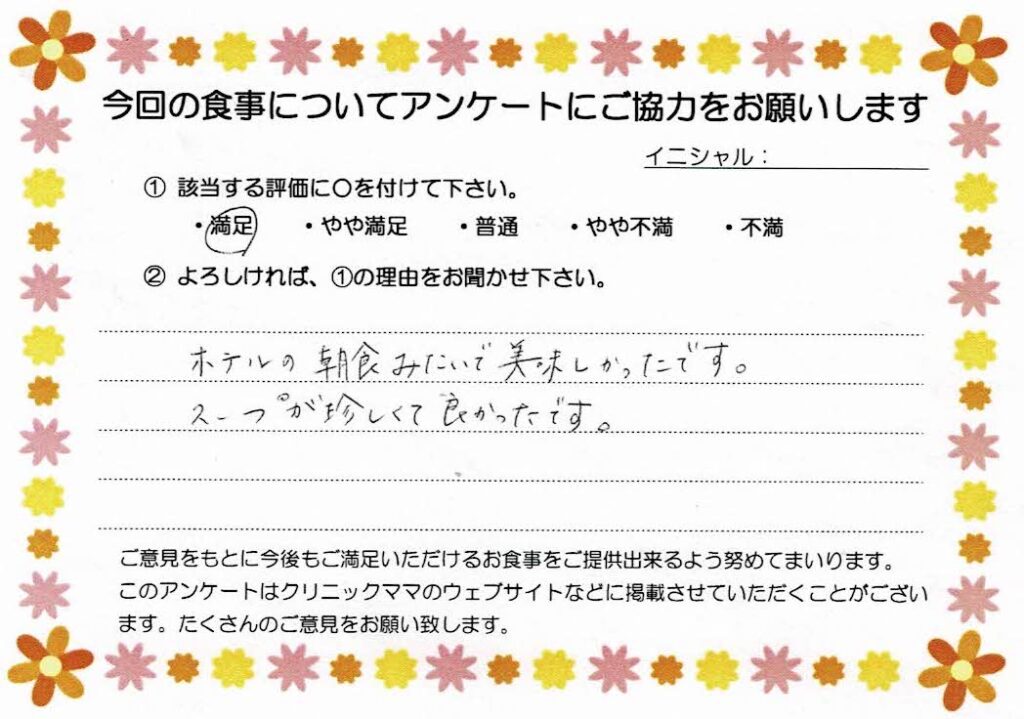 今回の食事についてアンケートにご協力をお願いします
イニシャル：
① 該当する評価に〇を付けて下さい。
・満足 ・やや満足 ・普通 ・やや不満 ・不満
② よろしければ、①の理由をお聞かせ下さい。
ホテルの朝食みたいで美味しかったです。
スープが珍しくて良かったです。
ご意見をもとに今後もご満足いただけるお食事をご提供出来るよう努めてまいります。
このアンケートはクリニックママのウェブサイトなどに掲載させていただくことがござい
ます。たくさんのご意見をお願い致します。